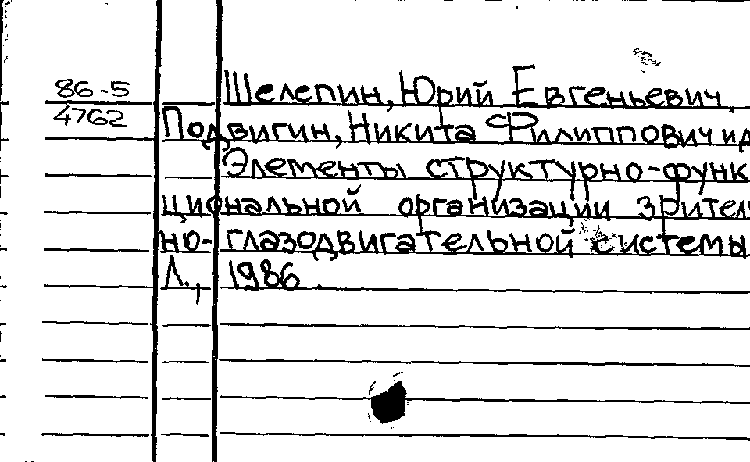 86-5
4762
Шелепин, Юрий Евгеньевич,
Подвигин, Никита Филиппович и д
Элементы структурно-функ
циональной организации зрител
но-глазодвигательной системы
Л., 1986.